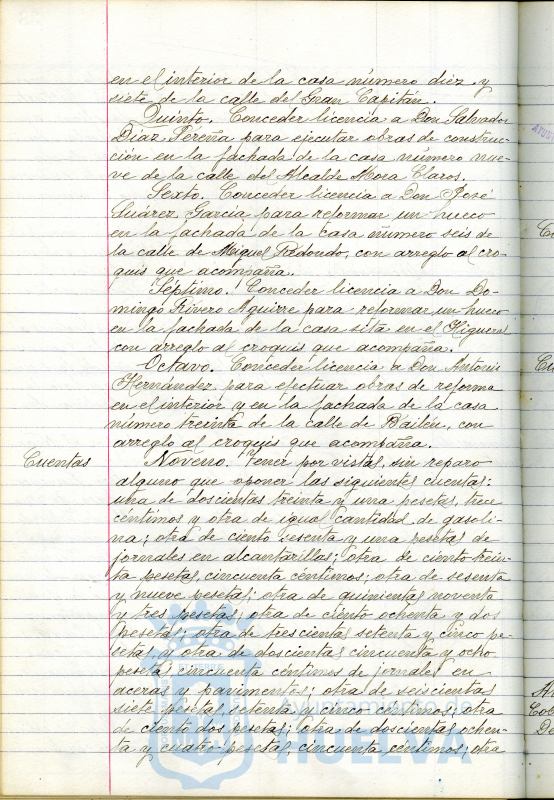 en el interior de la casa número diez y
siete de la calle del Gran Capitán.
Quinto. Conceder licencia a Don Salvador
Díaz Pereña para ejecutar obras de construc-
ción en la fachada de la casa número nue-
ve de la calle del Alcalde Mora Claros.
Sexto. Conceder licencia a Don José
Suárez García para reformar un hueco
en la fachada de la casa número seis de
la calle de Miguel Redondo, con arreglo al cro-
quis que acompaña.
Séptimo. Conceder licencia a Don Do-
mingo Rivero Aguirre para reformar un hueco
en la fachada de la casa sita en el Higueral
con arreglo al croquis que acompaña.
Octavo. Conceder licencia a Don Antonio
Hernández para efectuar obras de reforma
en el interior y en la fachada de la casa
número treinta de la calle de Bailén, con
arreglo al croquis que acompaña.
Cuentas Noveno. Tener por vistas, sin reparo
alguno que oponer las siguientes cuentas:
una de doscientas treinta y una pesetas, trece
céntimos y otra de igual cantidad de gasoli-
na; otra de ciento sesenta y una pesetas de
jornales en alcantarillas; otra de ciento trein-
ta pesetas, cincuenta céntimos; otra de sesenta
y nueve pesetas; otra de quinientas noventa
y tres pesetas; otra de ciento ochenta y dos
pesetas; otra de trescientas setenta y cinco pe-
setas y otra de doscientas cincuenta y ocho
pesetas cincuenta céntimos de jornales en
aceras y pavimentos; otra de seiscientas
siete pesetas setenta y cinco céntimos; otra
de ciento dos pesetas; otra de doscientas ochen-
ta y cuatro pesetas, cincuenta céntimos; otra
Ayuntamiento de
HUELVA